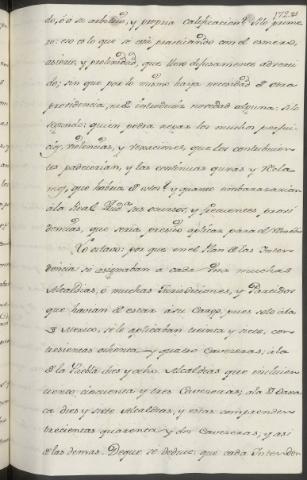 do, ó á su arbitrio, y propria calificacion? Si lo prime-
ro: eso es lo que se está practicando con el esmero,
esmero, y prolixidad, que llevo difusamente adverti-
do; sin que por lo mismo haya necesidad de otra
providencia, ni de introducir novedad alguna: Si lo
segundo: quien podrá negar los muchos perjui-
cios, violencias, y vexaciones, que los contribuien-
tes padecerian, y las continuas quexas y
que habria de estos? y quanto embarazarian
á la Real Aud.ª sus recursos, y frecuentes provi-
dencias, que seria preciso aplicar para el
Lo octavo: por que en el Plan de las Inten-
dencias se asignaban á cada una muchas
Alcaldias, ó muchas Jurisdiciones, y Partidos
que havian de estar á su Cargo, pues solo á la
de Mexico, se le aplicaban treinta y siete, con
trescientas ochenta y quatro Cavezeras; á la
de la Puebla diez y ocho Alcaldias que incluien
ciento cincuenta y tres Cavezeras; á la de Oaxa-
ca diez y siete Alcaldias, y estas comprenden
trecientas quarenta y dos Cavezeras; y asi
de las demas. De que se deduce: que cada Inten-